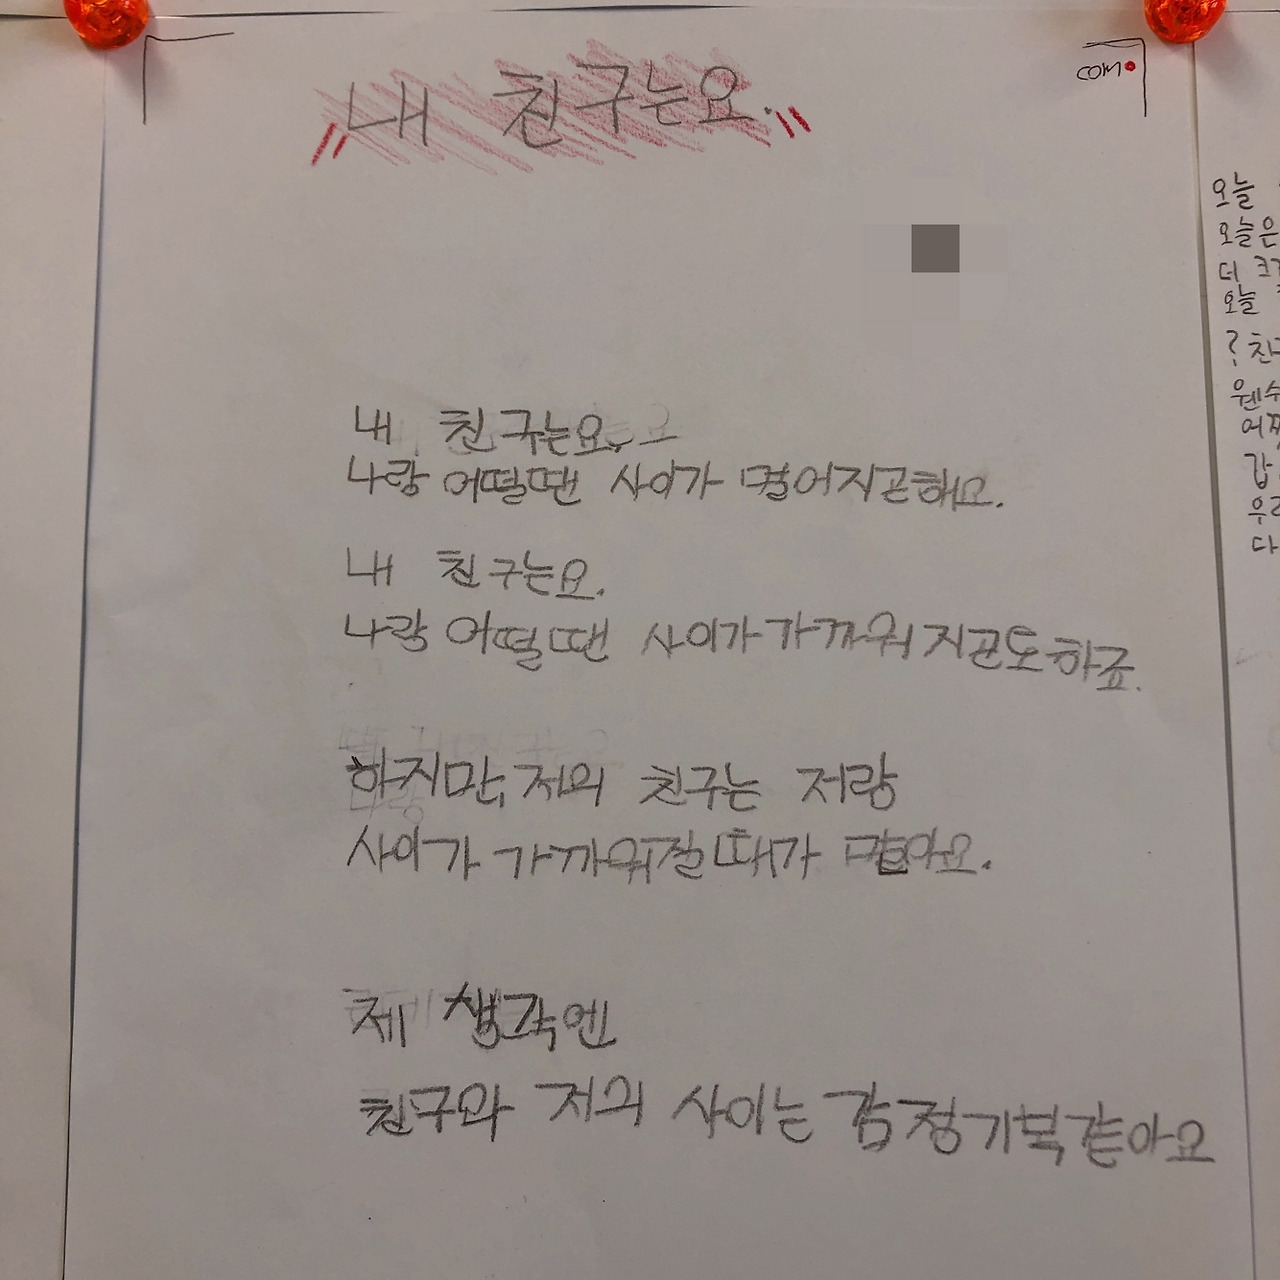 "내 친구는요."
com.
내 친구는요.
나랑 어떨땐 사이가 멀어지곤해요.
내 친구는요.
나랑 어떨땐 사이가 가까워지곤도하죠.
하지만, 저의 친구는 저랑
사이가 가까워질때가 많아요.
제 생각엔
친구와 저의 사이는 감정기복같아요
오늘
오늘은
더
오늘
?
우리
다